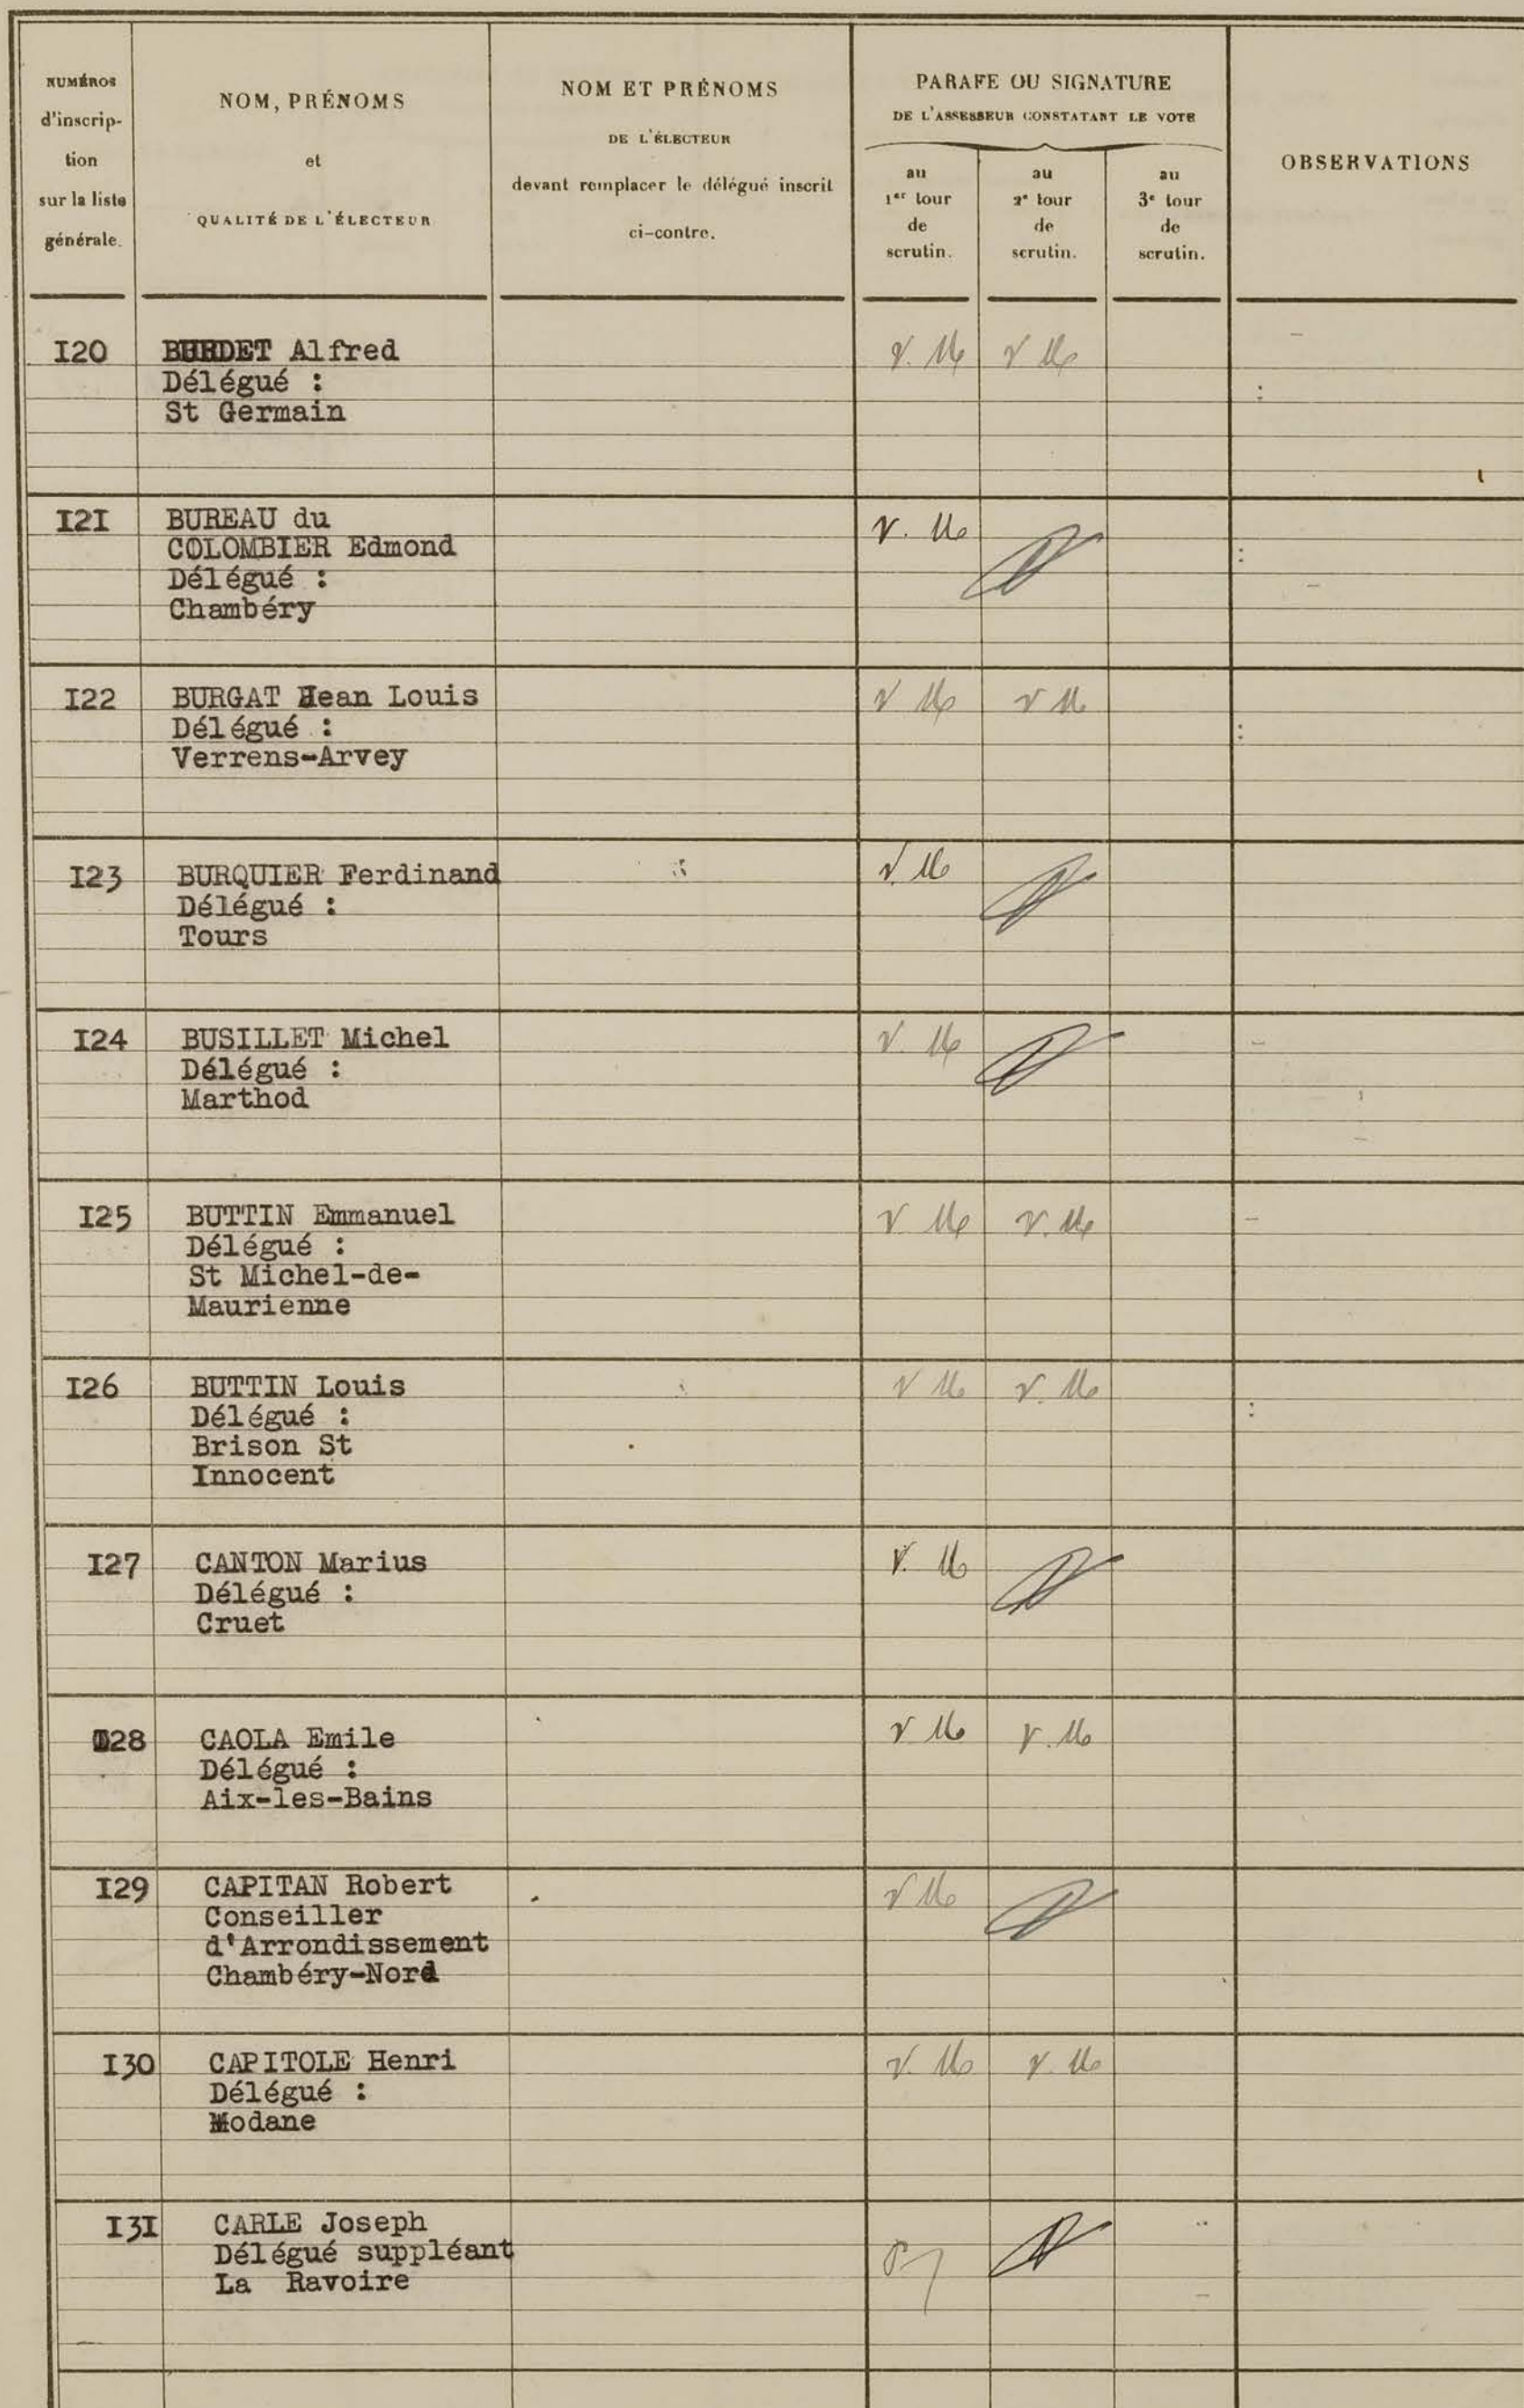 NUMÉROS
d'inscrip-
tion
sur la liste
générale.
NOM, PRÉNOMS
et
QUALITÉ DE L'ÉLECTEUR
NOM ET PRÉNOMS
DE L'ÉLECTEUR
devant remplacer le délégué inscrit
ci-contre.
PARAFE OU SIGNATURE
DE L'ASSESSEUR CONSTATANT LE VOTE
au
1er tour
de
scrutin.
au
2e tour
de
scrutin.
au
3e tour
de
scrutin.
OBSERVATIONS
I20 BURDET Alfred
Délégué :
St Germain
I2I BUREAU du
COLOMBIER Edmond
Délégué :
Chambéry
I22 BURGAT Jean Louis
Délégué :
Verrens-Arvey
I23 BURQUIER Ferdinand
Délégué :
Tours
I24 BUSILLET Michel
Délégué :
Marthod
I25 BUTTIN Emmanuel
Délégué :
St Michel-de-
Maurienne
I26 BUTTIN Louis
Délégué :
Brison St
Innocent
I27 CANTON Marius
Délégué :
Cruet
I28 CAOLA Emile
Délégué :
Aix-les-Bains
I29 CAPITAN Robert
Conseiller
d'Arrondissement
Chambéry-Nord
I30 CAPITOLE Henri
Délégué :
Modane
I3I CARLE Joseph
Délégué suppléant
La Ravoire